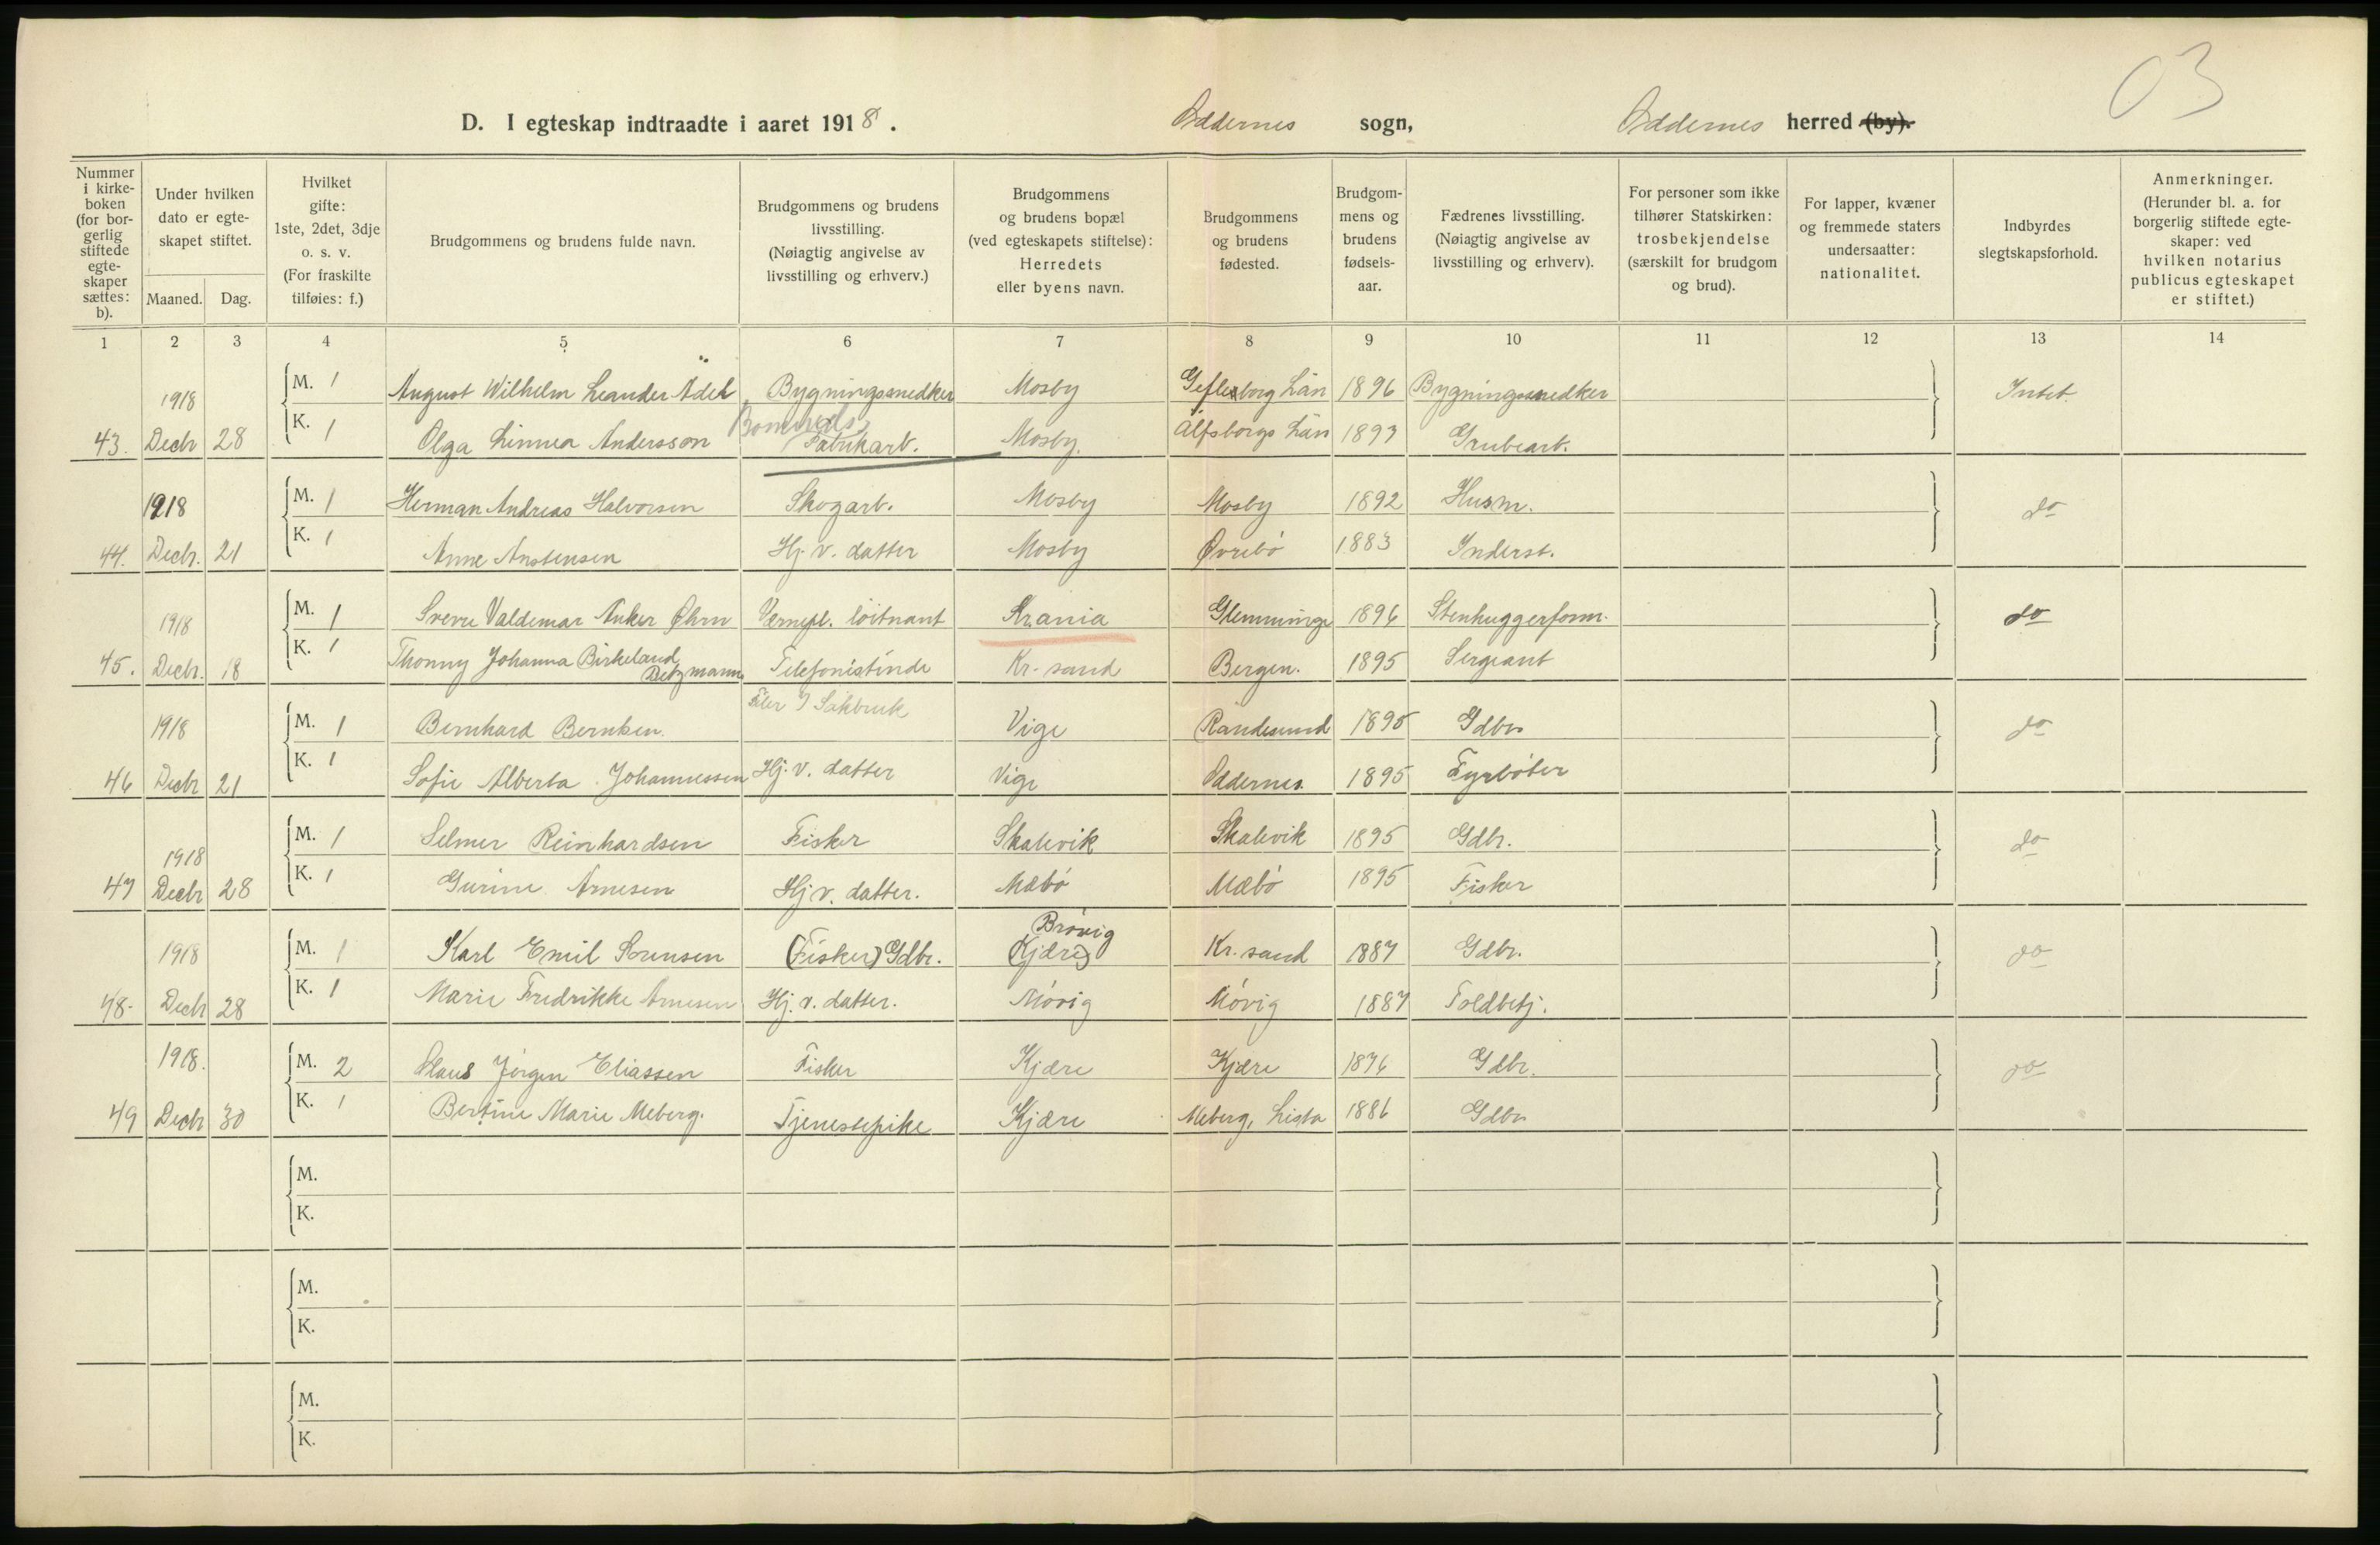 03
D. I egteskap indtraadte i aaret 1918. Oddernes sogn, Oddernes herred (by).
Nummer i kirkeboken (for borgerlig stiftede egteskaper sættes: b).
Under hvilken dato er egteskapet stiftet.
Maaned. Dag.
Hvilket gifte: 1ste, 2det, 3dje o. s. v. (For fraskilte tilføies: f.)
Brudgommens og brudens fulde navn.
Brudgommens og brudens livsstilling. (Nøiagtig angivelse av livsstilling og erhverv.)
Brudgommens og brudens bopæl (ved egteskapets stiftelse): Herredets eller byens navn.
Brudgommens og brudens fødested.
Brudgommens og brudens fødselsaar.
Fædrenes livsstilling. (Nøiagtig angivelse av livsstilling og erhverv).
For personer som ikke tilhører Statskirken: trosbekjendelse (særskilt for brudgom og brud).
For lapper, kvæner og fremmede staters undersaatter: nationalitet.
Indbyrdes slegtskapsforhold.
Anmerkninger. (Herunder bl. a. for borgerlig stiftede egteskaper: ved hvilken notarius publicus egteskapet er stiftet.)
1 2 3 4 5 6 7 8 9 10 11 12 13 14
1918 M. 1 August Wilhelm Leander Ädel Bygningssnedker Mosby Gefleborg Län 1896 Bygningssnedker Intet.
43. Decbr 28 K. 1 Olga Linnea Andersson Bomulds Fabrikarb. Mosby. Älfsborgs Län 1893 Grubearb.
1918 M. 1 Herman Andreas Halvorsen Skogarb. Mosby Mosby 1892 Husm. do
44. Decbr. 21 K. 1 Anne Anstensen Hj. v. datter Mosby Øvrebö 1883 Inderst.
1918 M. 1 Sverre Valdemar Anker Øhrn Vernepl. löitnant Krania Glemminge 1896 Stenhuggerform. do
45. Decbr. 18 K. 1 Thonny Johanna Birkeland Betzmann Telefonistinde Kr. sand Bergen. 1895 Sergeant
1918 M. 1 Bernhard Berntsen. Vige Randesund 1895 Gdbr. do
46 Decbr 21 K. 1 Sofie Alberta Johannessen Hj. v. datter Vige Oddernes 1895 Fyrböter
1918 M. 1 Selmer Reinhardsen Fisker Skalevik Skalevik 1895 Gdbr. do
47 Decbr 28 K. 1 Gurine Arnesen Hj. v. datter. Mæbö Mæbö 1895 Fisker
1918 M. 1 Karl Emil Sørensen (Fisker) Gdbr. Brövig (Kjære) Kr. sand 1887 Gdbr. do
48. Decbr 28 K. 1 Marie Fredrikke Arnesen Hj. v. datter. Mövig Mövig 1887 Toldbetj.
1918. M. 2 Claus Jörgen Eliassen Fisker Kjære Kjære 1876 Gdbr. do
49 Decbr 30 K. 1 Bertine Marie Meberg. Tjenestepike Kjære Meberg, Lista 1886 Gdbr
M.
K.
M.
K.
M.
K.